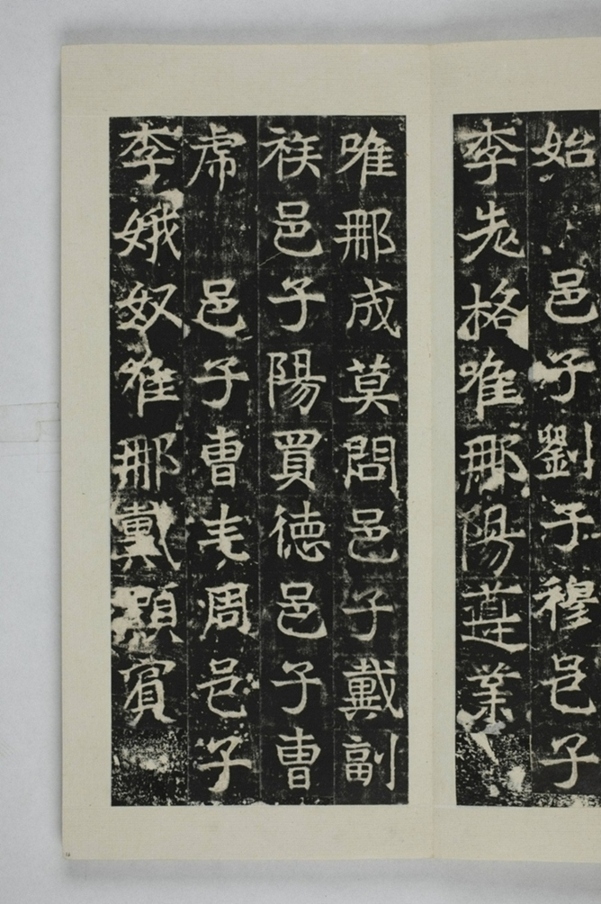 始 邑子劉子穆邑子
李格唯那陽業
唯那成莫問邑子戴副
邑子陽買德邑子曹
邑子曹周邑子
李娥奴唯那戴顯賓